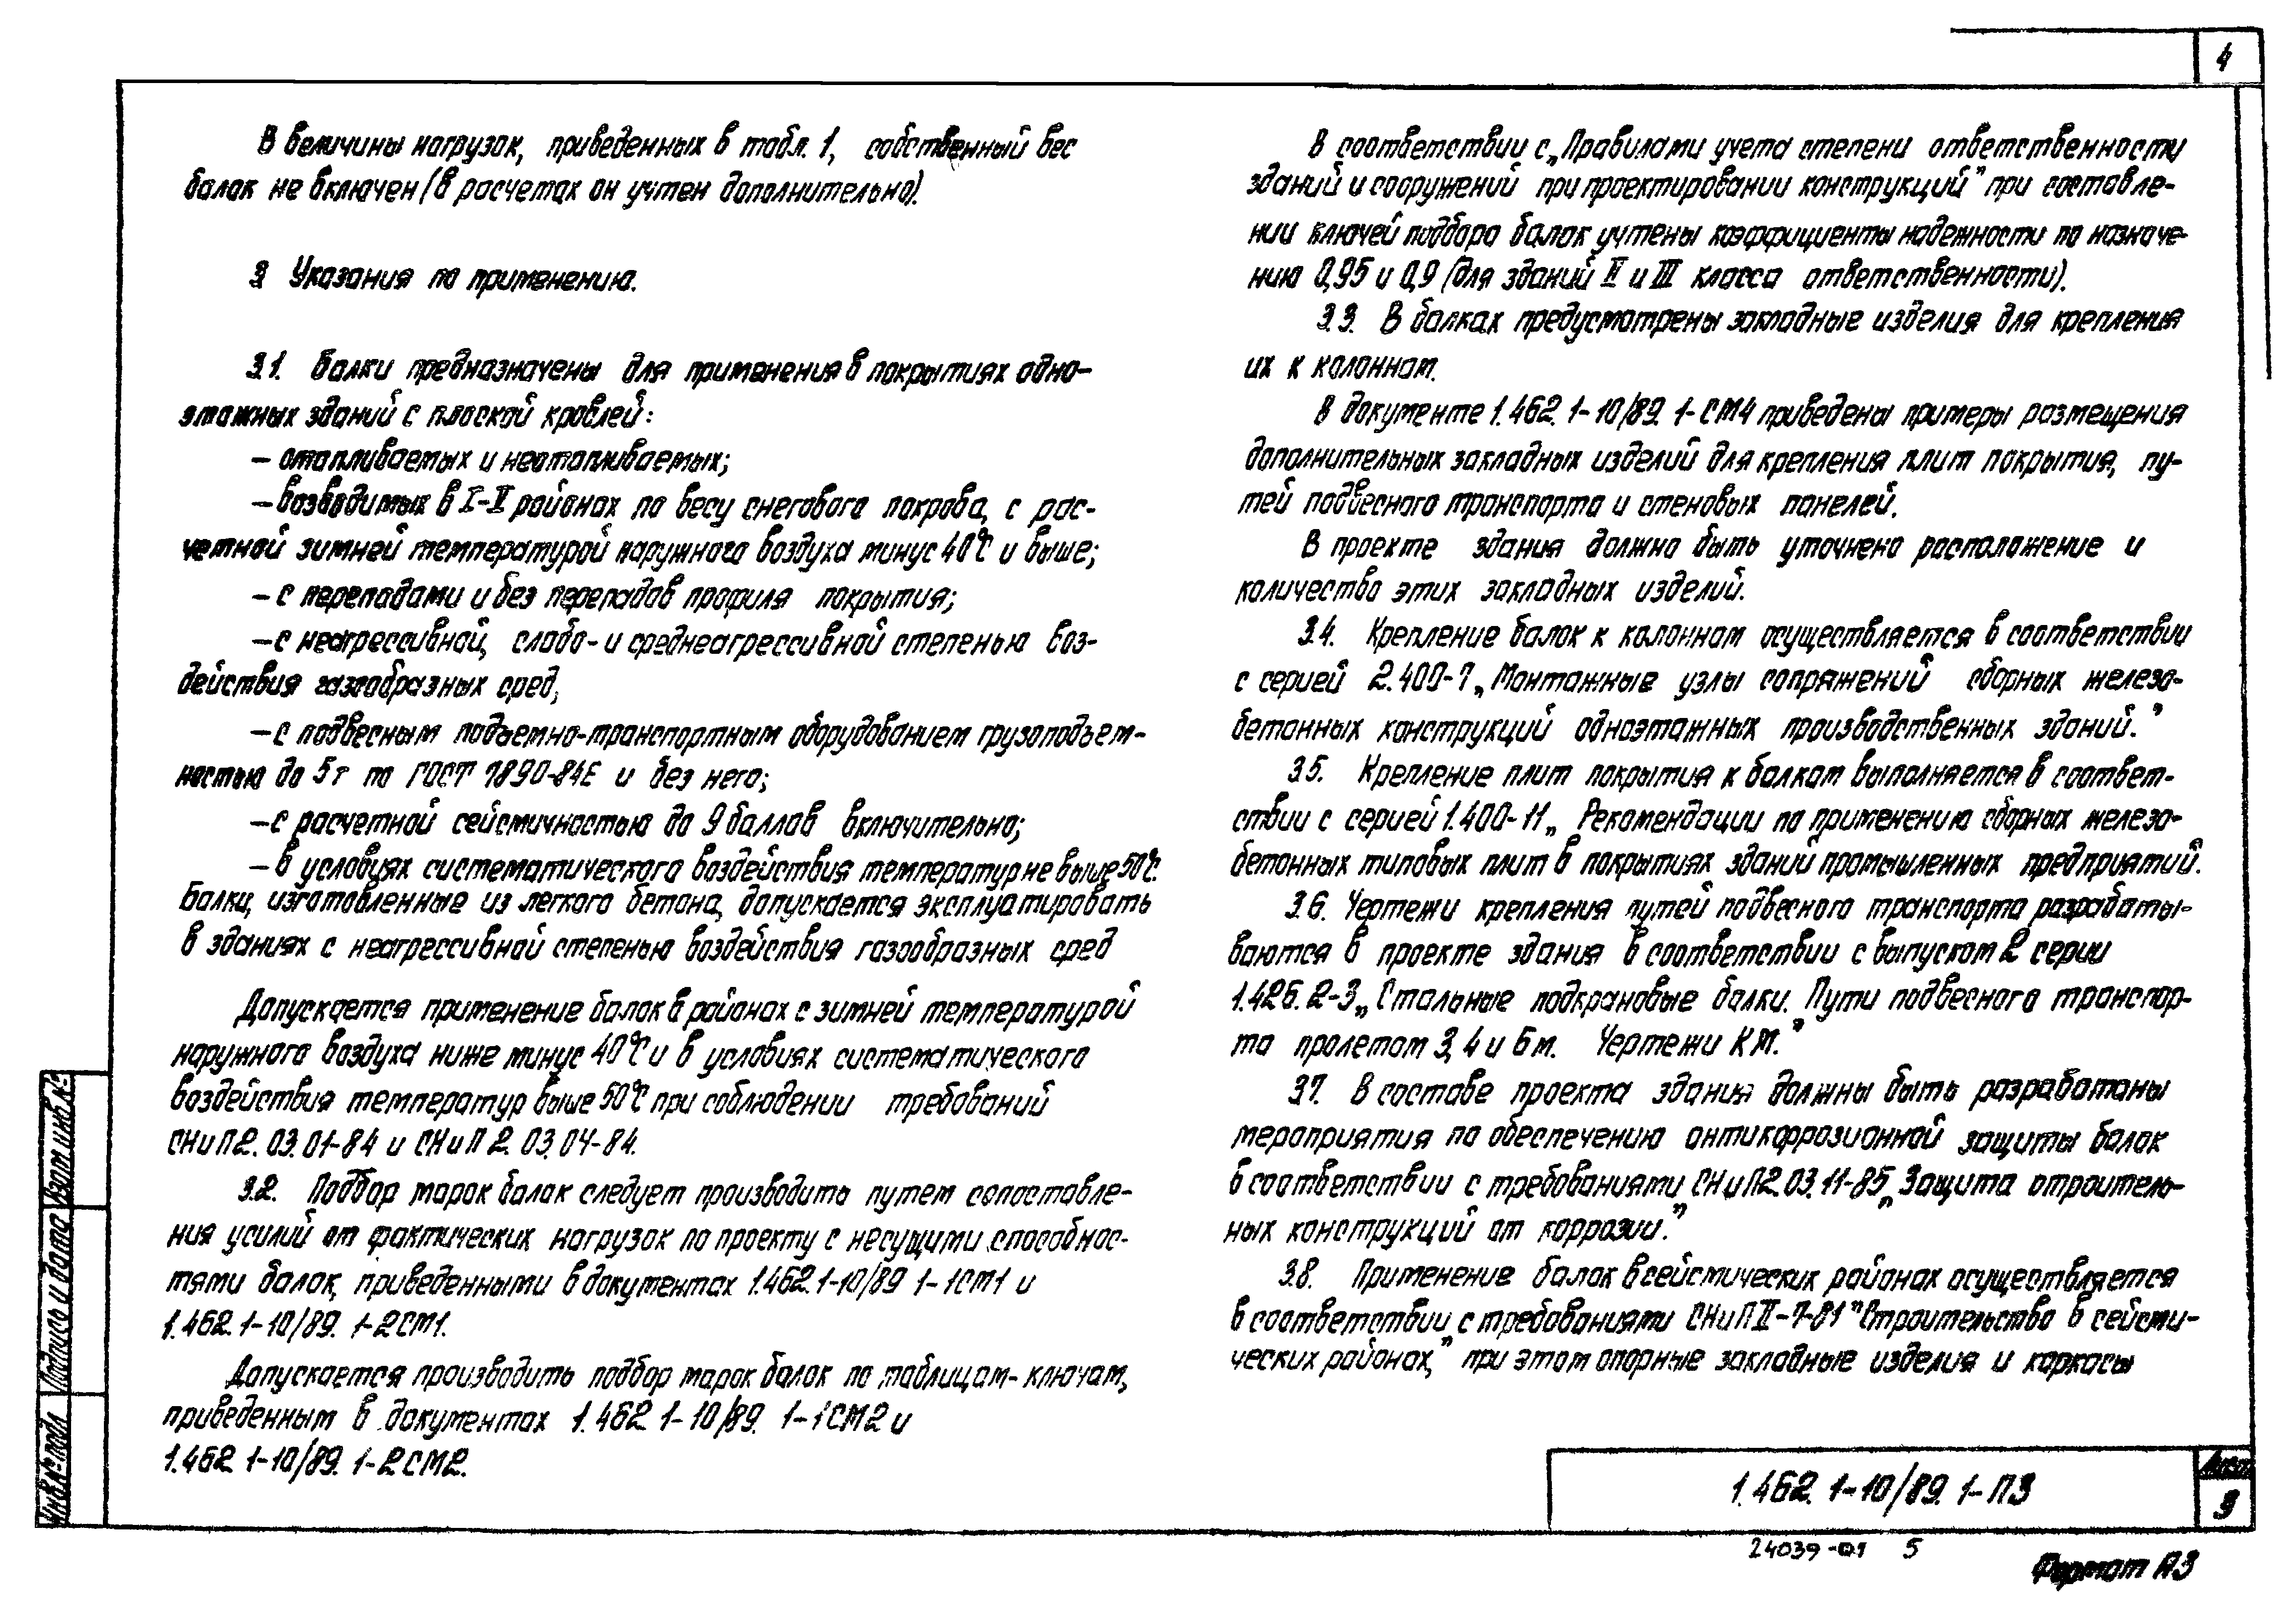 4
В величины нагрузок, приведенных в табл. 1, собственный вес
балок не включен (в расчетах он учтен дополнительно).
3 Указания по применению.
3.1. Балки предназначены для применения в покрытиях одно-
этажных зданий с плоской кровлей:
– отапливаемых и неотапливаемых;
– возводимых в I-V районах по весу снегового покрова, с рас-
четной зимней температурой наружного воздуха минус 40°С и выше;
– с перепадами и без перепадов профиля покрытия;
– с неагрессивной, слабо- и среднеагрессивной степенью воз-
действия газообразных сред;
– с подвесным подъемно-транспортным оборудованием грузоподъем-
ностью до 5т по ГОСТ 7890-84Е и без него;
– с расчетной сейсмичностью до 9 баллов включительно;
– в условиях систематического воздействия температур не выше 50°С.
Балки, изготовленные из легкого бетона, допускается эксплуатировать
в зданиях с неагрессивной степенью воздействия газообразных сред
Допускается применение балок в районах с зимней температурой
наружного воздуха ниже минус 40°С и в условиях систематического
воздействия температур выше 50°С при соблюдении требований
СНиП 2.03.01-84 и СНиП 2.03.04-84.
3.2. Подбор марок балок следует производить путем сопоставле-
ния усилий от фактических нагрузок по проекту с несущими способнос-
тями балок, приведенными в документах 1.462.1-10/89 1-1СМ1 и
1.462.1-10/89. 1-2СМ1.
Допускается производить подбор марок балок по таблицам-ключам,
приведенным в документах 1.462 1-10/89. 1-1СМ2 и
1.462 1-10/89. 1-2СМ2.
В соответствии с „Правилами учета степени ответственности
зданий и сооружений при проектировании конструкций" при составле-
нии ключей подбора балок учтены коэффициенты надежности по назначе-
нию 0,95 и 0,9 (для зданий II и III класса ответственности).
3.3. В балках предусмотрены закладные изделия для крепления
их к колоннам.
В документе 1.462.1-10/89. 1-СМ4 приведены примеры размещения
дополнительных закладных изделий для крепления плит покрытия, пу-
тей подвесного транспорта и стеновых панелей.
В проекте здания должно быть уточнено расположение и
количество этих закладных изделий.
3.4. Крепление балок к колоннам осуществляется в соответствии
с серией 2.400-7 „Монтажные узлы сопряжений сборных железо-
бетонных конструкций одноэтажных производственных зданий."
3.5. Крепление плит покрытия к балкам выполняется в соответ-
ствии с серией 1.400-11 „Рекомендации по применению сборных железо-
бетонных типовых плит в покрытиях зданий промышленных предприятий.
3.6. Чертежи крепления путей подвесного транспорта разрабаты-
ваются в проекте здания в соответствии с выпуском 2 серии
1.426.2-3 „Стальные подкрановые балки. Пути подвесного транспор-
та пролетом 3, 4 и 6 м. Чертежи КМ."
3.7. В составе проекта здания должны быть разработаны
мероприятия по обеспечению антикоррозионной защиты балок
в соответствии с требованиями СНиП 2.03.11-85 „Защита строитель-
ных конструкций от коррозии."
3.8. Применение балок в сейсмических районах осуществляется
в соответствии с требованиями СНиП II-7-81 "Строительство в сейсми-
ческих районах," при этом опорные закладные изделия и каркасы
Взам инв.№
Подпись и дата
Инв.№ подл
1.462.1-10/89. 1-ПЗ
Лист
3
24039-01 5
Формат А3